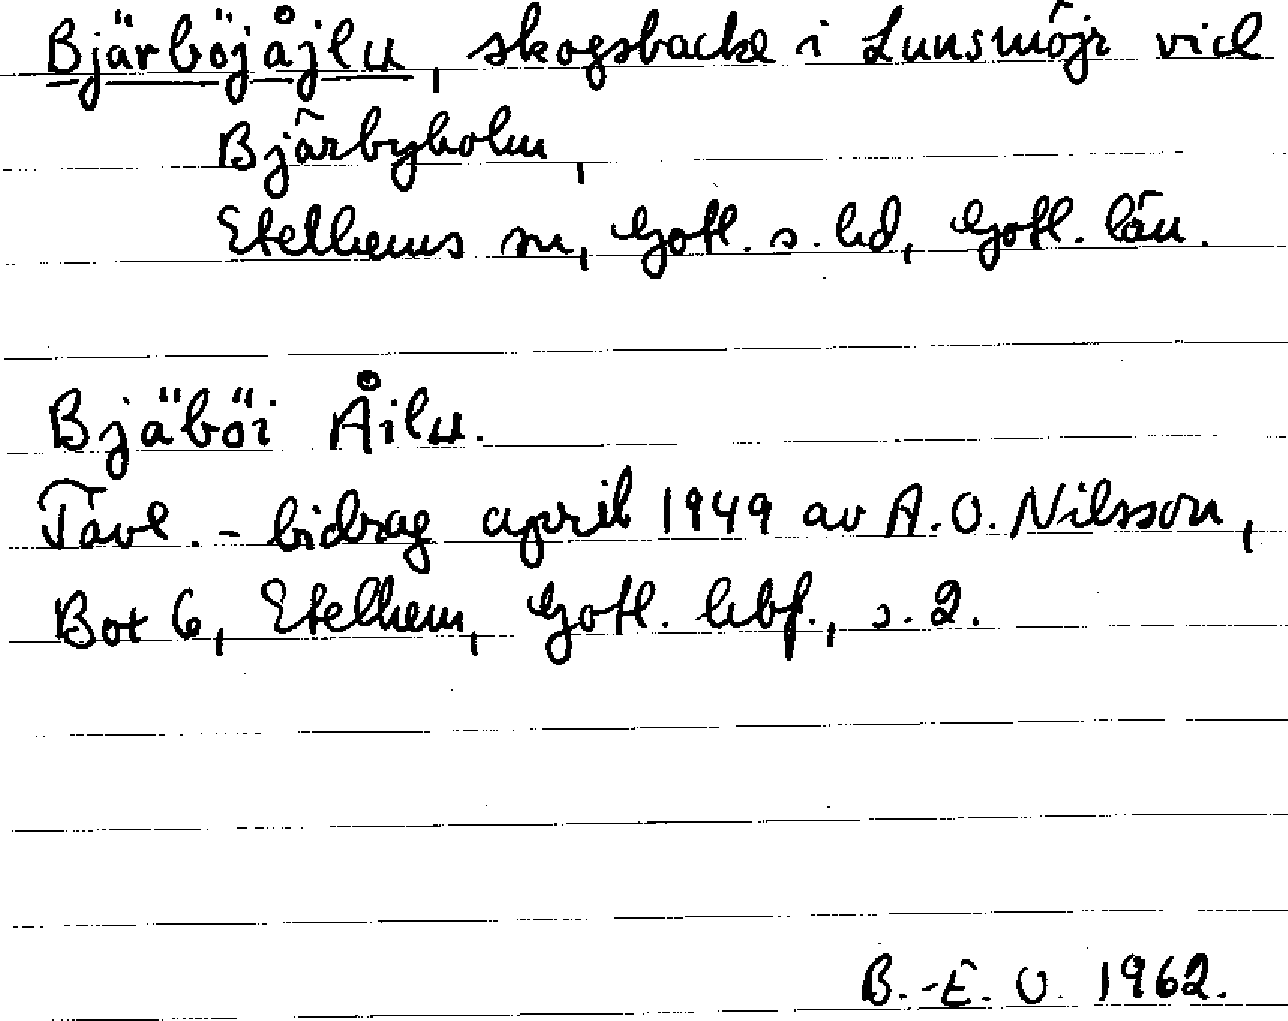 Bjärböjåjlu, skogsbacke i Lunsmöjr vid
Bjärbyholm,
Etelhems sn, Gotl. s. hd, Gotl. län.
Bjäböi Åilu.
Tävl.-bidrag april 1949 av A.O. Nilsson,
Bot 6, Etelhem, Gotl. hbf., s. 2.
B.-E. O. 1962.